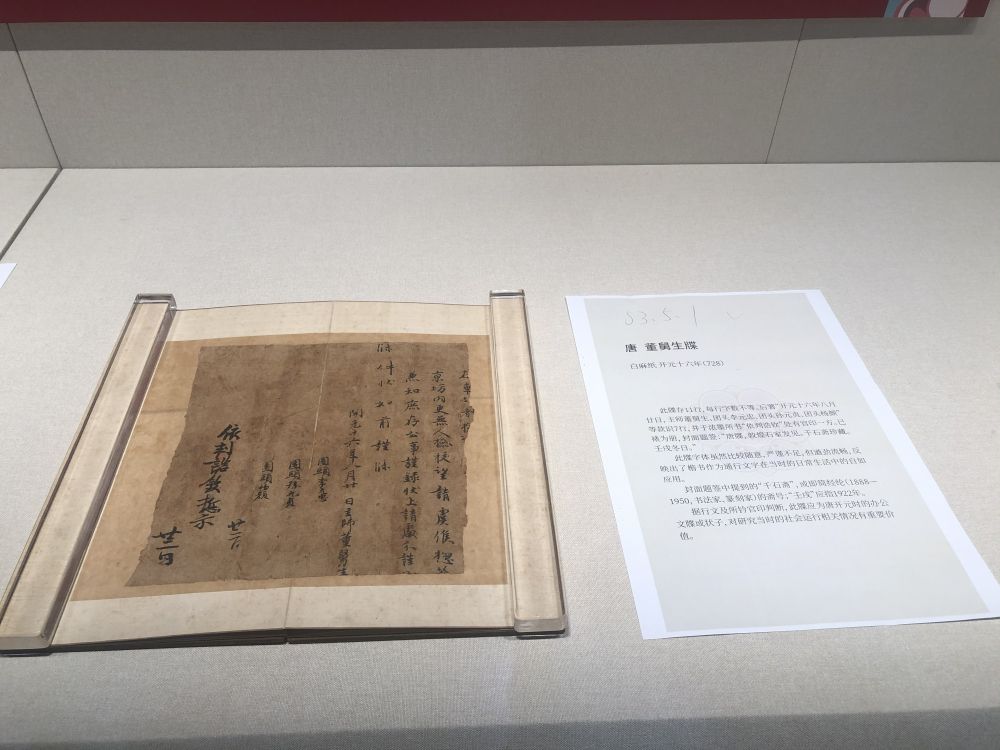 京坊内更無人檢校望請虞候
無知庶存公事謹錄狀上請處分謹
牒件狀如前謹牒
開元十六年八月廿日主帥董舅生
團頭李忠
團頭孫元貞
團頭楊
依判諮
示
廿一日
83.5.1
唐 董舅生牒
白麻纸 开元十六年(728)
此牒存11行，每行字数不等。后署“开元十六年八月
廿日，主帅董舅生、团头李元忠、团头孙元贞、团头杨
等款识7行，并于浓墨所书“依判
裱为册，封面题签：“唐牒，敦煌石室发见，千石斋珍藏，
壬戌冬日。”
此牒字体虽然比较随意，严谨不足，但遒劲流畅，反
映出了楷书作为通行文字在当时的日常生活中的自如
应用。
封面题签中提到的“千石斋”，或即简经纶（1888—
1950，书法家、篆刻家）的斋号；“壬戌”应指1922年。
据行文及所钤官印判断，此牒应为唐开元时的办公
文牒或状子，对研究当时的社会运行相关情况有重要价
值。